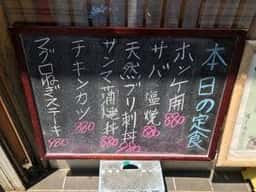 本日の定食
ホッケ開 880
サバ塩焼 880
天然ブリ刺丼
サンマ蒲焼丼 880
チキンカツ 880
マグロねぎステーキ 980